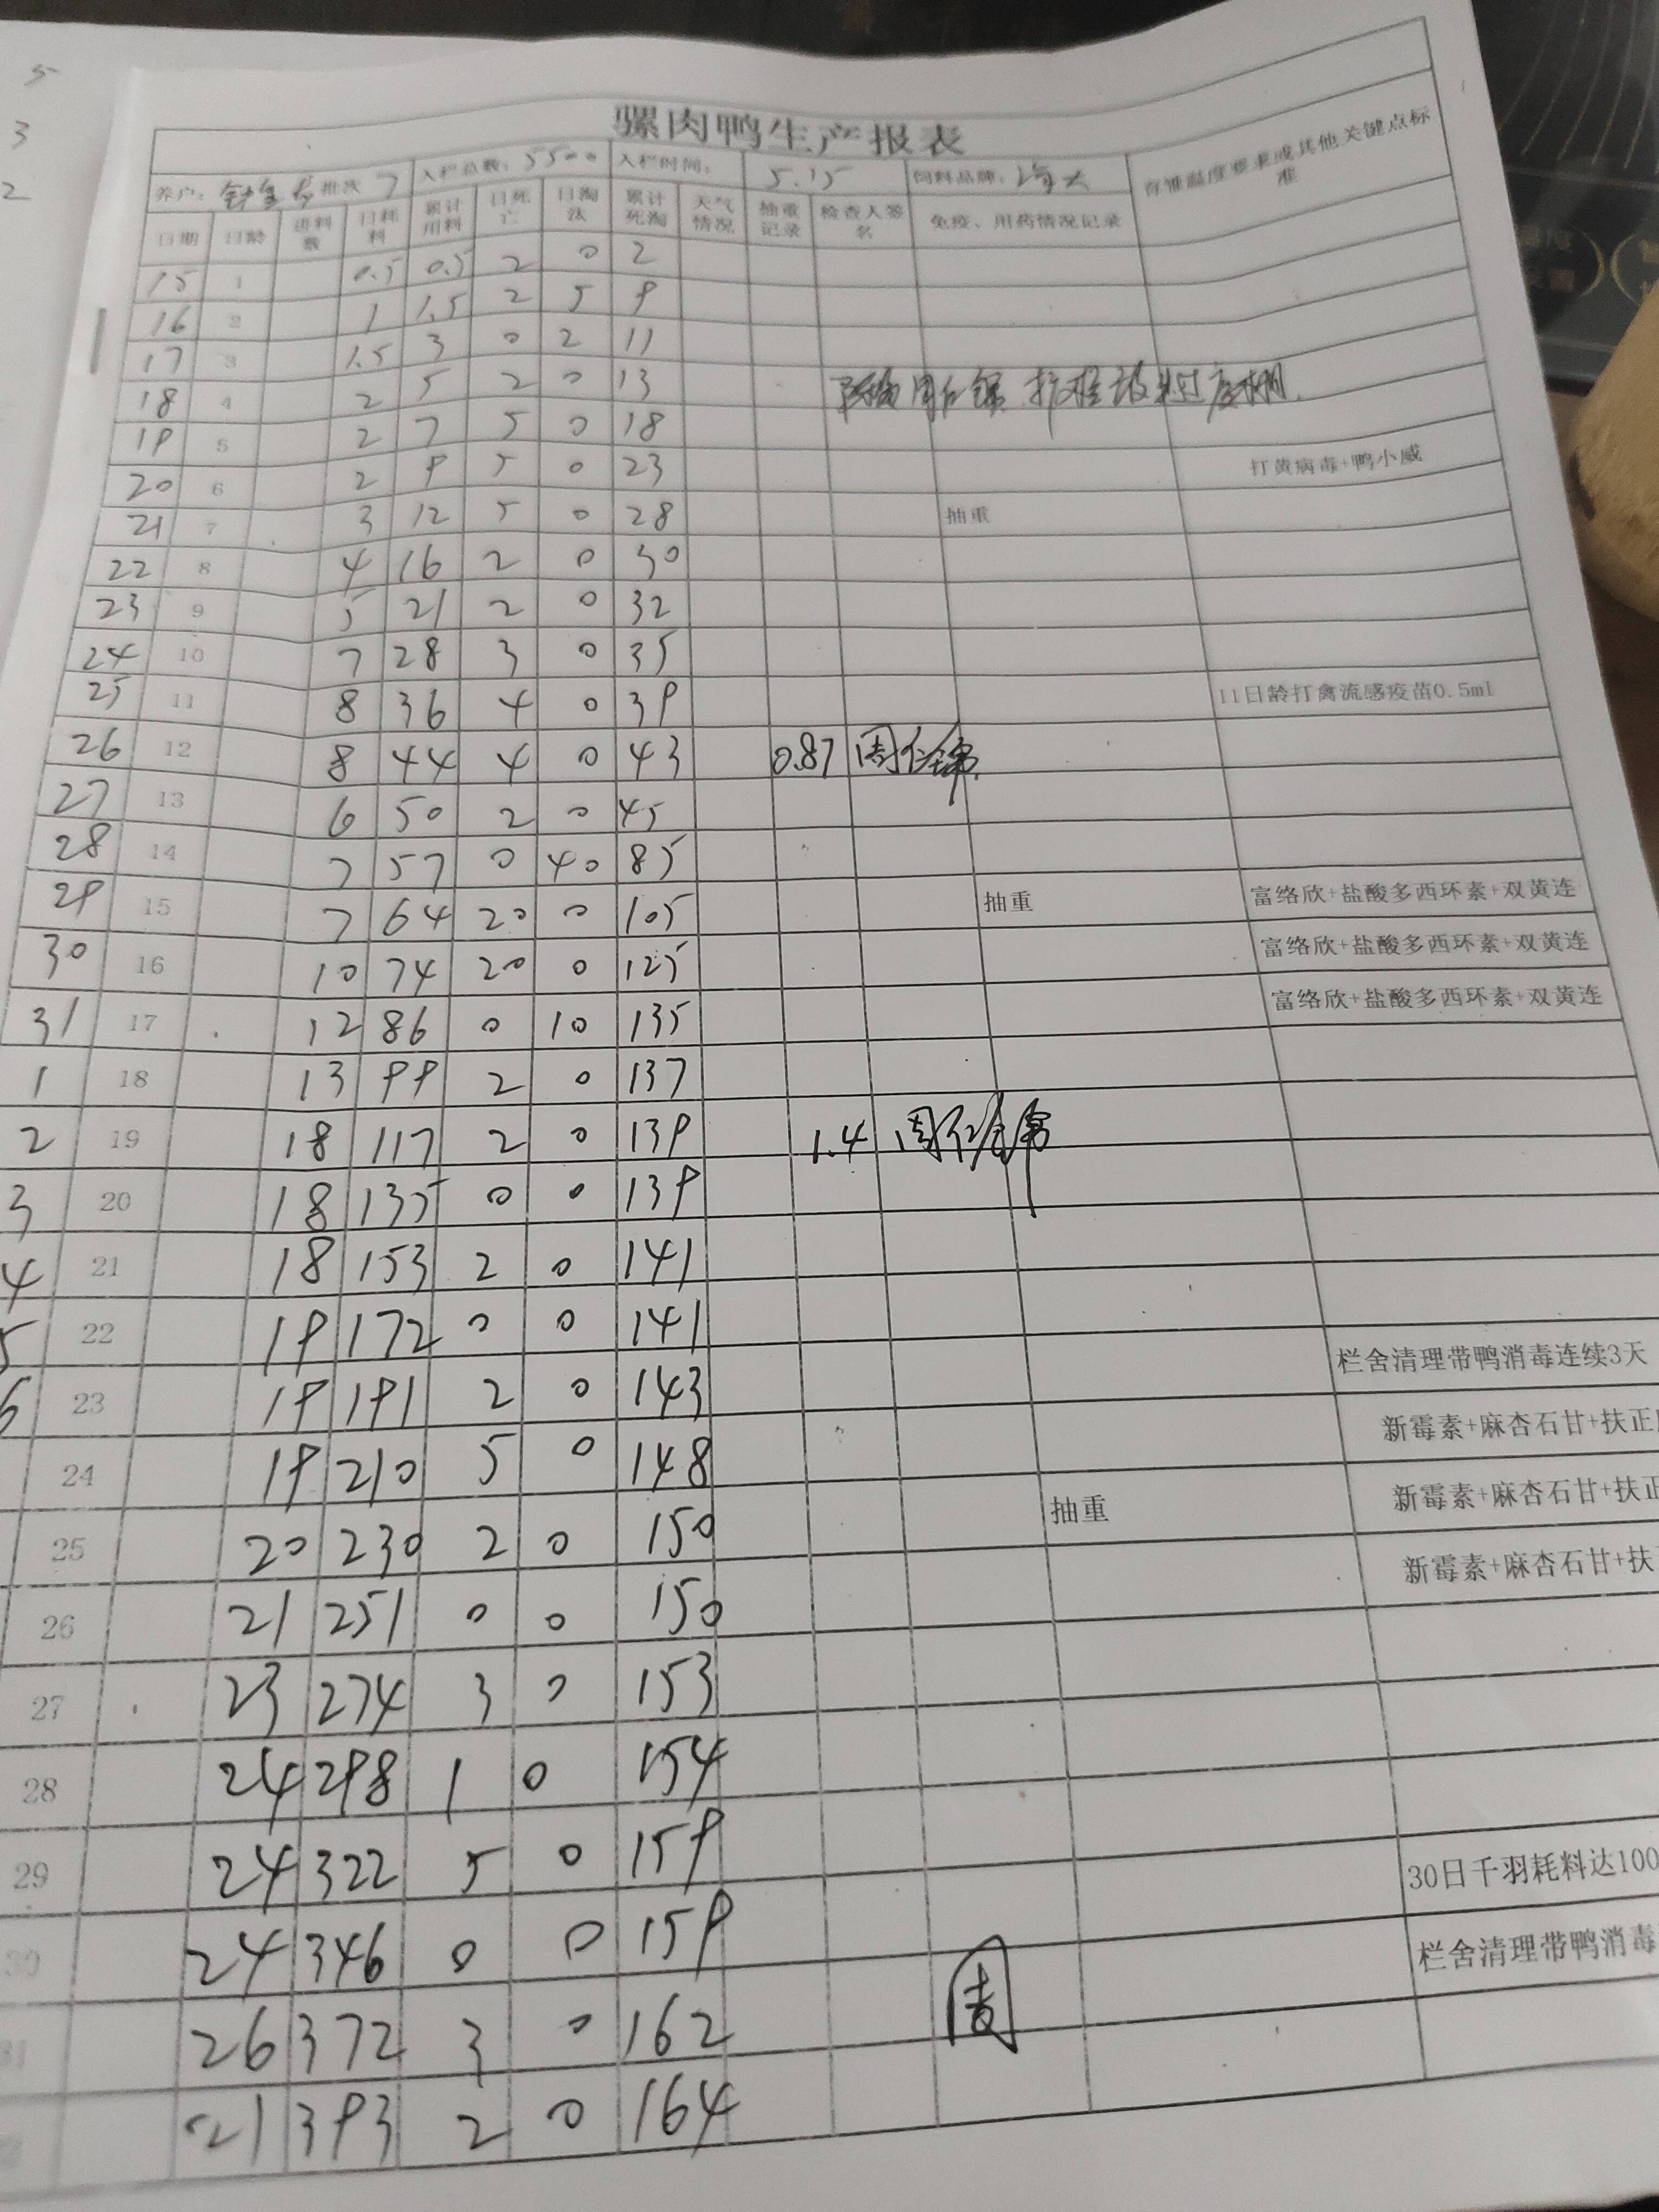 骡肉鸭生产报表
养户: 批次 7 入栏总数: 5500 入栏时间: 5.15 饲料品牌: 海大 育雏温度要求或其他关键点标准
日期 日龄 进料数 日耗料 累计用料 日死亡 日淘汰 累计死淘 天气情况 抽重记录 检查人签名 免疫、用药情况记录
15 1 0.5 0.5 2 0 2
16 2 1 1.5 2 5 9
17 3 1.5 3 0 2 11
18 4 2 5 2 0 13
19 5 2 7 5 0 18
20 6 2 9 5 0 23 打黄病毒+鸭小威
21 7 3 12 5 0 28 抽重
22 8 4 16 2 0 30
23 9 5 21 2 0 32
24 10 7 28 3 0 35
25 11 8 36 4 0 39 11日龄打禽流感疫苗0.5ml
26 12 8 44 4 0 43 0.87 周仁锦
27 13 6 50 2 0 45
28 14 7 57 0 40 85
29 15 7 64 20 0 105 抽重 富络欣+盐酸多西环素+双黄连
30 16 10 74 20 0 125 富络欣+盐酸多西环素+双黄连
31 17 12 86 0 10 135 富络欣+盐酸多西环素+双黄连
1 18 13 99 2 0 137
2 19 18 117 2 0 139 1.4 周仁锦
3 20 18 135 0 0 139
4 21 18 153 2 0 141
5 22 19 172 0 0 141
6 23 19 191 2 0 143 栏舍清理带鸭消毒连续3天
24 19 210 5 0 148 新霉素+麻杏石甘+扶正
25 20 230 2 0 150 抽重 新霉素+麻杏石甘+扶正
26 21 251 0 0 150 新霉素+麻杏石甘+扶
27 23 274 3 0 153
28 24 298 1 0 154
29 24 322 5 0 159
30 24 346 0 0 159 30日千羽耗料达100
31 26 372 3 0 162 周 栏舍清理带鸭消毒
21 393 2 0 164